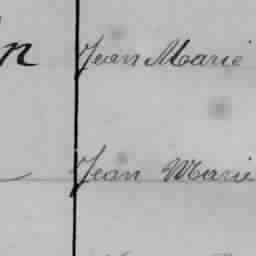 n Jean Marie
Jean Marie